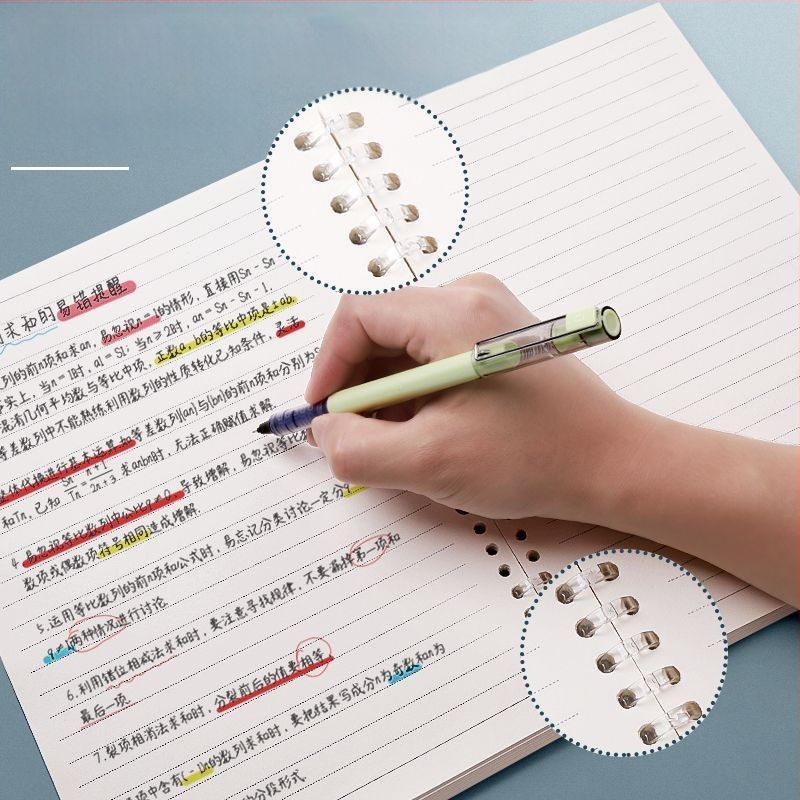 求和的易错提醒
列的前n项和求an,易忽视n=1的情形,直接用Sn-Sn
实上,当n=1时,a1=S1;当n≥2时,an=Sn-Sn-1.
混淆几何平均数与等比中项,正数a,b的等比中项是±ab.
等差数列中不能熟练利用数列的性质转化已知条件,灵活
整体代换进行基本运算.如等差数列{an}与{bn}的前n项和分别为S
和Tn,已知Sn/Tn=n+1/2n+3,求anbn时,无法正确赋值求解
4.易忽视等比数列中公比q≠0,导致增解,易忽视等比
数项或偶数项符号相同造成增解.
5.运用等比数列的前n项和公式时,易忘记分类讨论一定分q
q≠1两种情况进行讨论
6.利用错位相减法求和时,要注意寻找规律,不要漏掉第一项和
最后一项.
7.裂项相消法求和时,分裂前后的值要相等
项中含有(-1)n的数列求和时,要把结果写成分n为奇数和n为
的分段形式